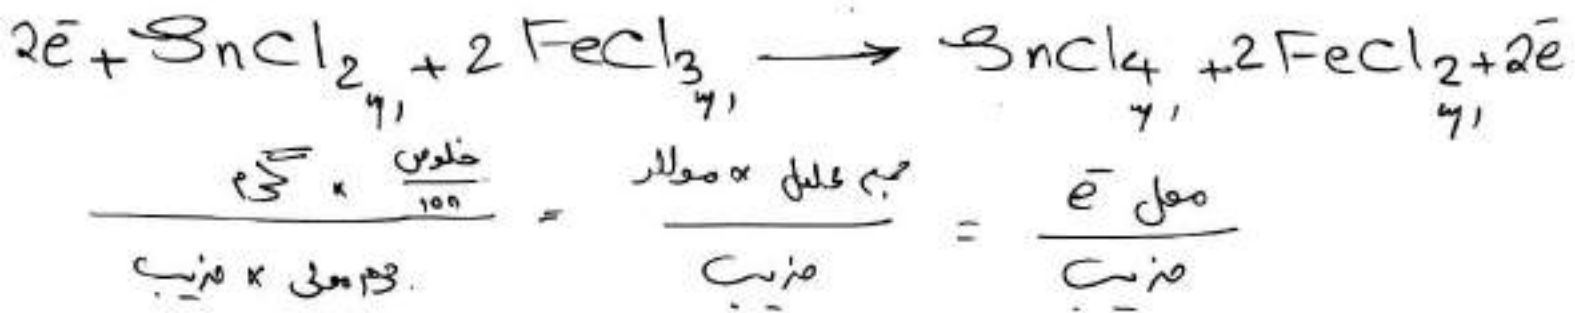 2e⁻ + SnCl₂ + 2 FeCl₃ → SnCl₄ + 2FeCl₂ + 2e⁻
گرم × خلوص/100 / جرم مولی × ضریب = مولار × حجم محلول / ضریب = مول e⁻ / ضریب